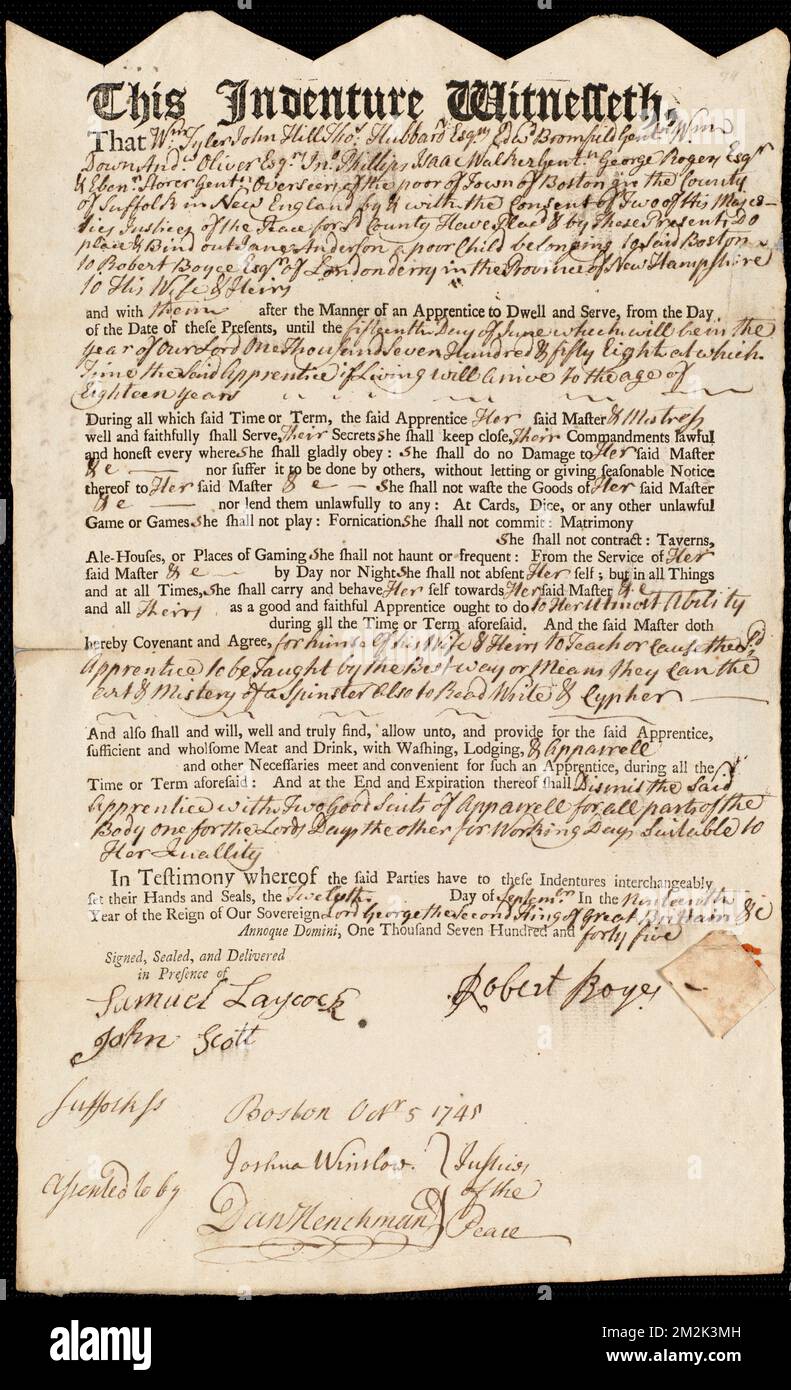 This Indenture Witnesseth,
That Wm Tyler John Hill Thos Hubbard Esqrs Edwd Bromfield Gentn Wm
Down Andw Oliver Esqr Jno Phillips Isaac Walker Gentn George Rogers Esqr
& Ebenr Storer Gentn Overseers of the poor of Town of Boston in the County
of Suffolk in New England by & with the Consent of Two of His Majes-
ties Justices of the Peace for sd County Have Plac'd & by These Presents Do
place & Bind out Jane Anderson a poor Child belonging to said Boston
to Robert Boyce Esqr of Londonderry in the Province of New Hampshire
to His Wife & Heirs
and with them after the Manner of an Apprentice to Dwell and Serve, from the Day
of the Date of these Presents, until the fifteenth Day of June which will be in the
year of Our Lord One Thousand Seven Hundred & fifty Eight at which
Time the Said Apprentice if Living will arrive to the age of
Eighteen years
During all which said Time or Term, the said Apprentice Her said Master & Mistress
well and faithfully shall Serve, Their Secrets she shall keep close, Their Commandments lawful
and honest every where she shall gladly obey: she shall do no Damage to Her said Master
&c nor suffer it to be done by others, without letting or giving seasonable Notice
thereof to Her said Master &c — she shall not waste the Goods of Her said Master
&c — nor lend them unlawfully to any: At Cards, Dice, or any other unlawful
Game or Games she shall not play: Fornication she shall not commit: Matrimony
she shall not contract: Taverns,
Ale-Houses, or Places of Gaming she shall not haunt or frequent: From the Service of Her
said Master &c — by Day nor Night she shall not absent Her self; but in all Things
and at all Times, she shall carry and behave Her self towards Her said Master &c
and all Theirs as a good and faithful Apprentice ought to do to Her Utmost Ability
during all the Time or Term aforesaid. And the said Master doth
hereby Covenant and Agree, for himself his Wife & Heirs to Teach or Cause the sd
Apprentice to be Taught by the Best way or Means they Can the
art & Mistery of a Spinster also to Read Write & Cypher —
And also shall and will, well and truly find, allow unto, and provide for the said Apprentice,
sufficient and wholsome Meat and Drink, with Washing, Lodging, & apparrell
and other Necessaries meet and convenient for such an Apprentice, during all the
Time or Term aforesaid: And at the End and Expiration thereof shall Dismis the Said
Apprentice with Two Good Suits of Apparrell for all parts of the
Body one for the Lords Days the other for Working Days Suitable to
Her Quallity
In Testimony whereof the said Parties have to these Indentures interchangeably
set their Hands and Seals, the Twelfth Day of Septemr In the Nineteenth
Year of the Reign of Our Sovereign Lord George the Second King of Great Brittain &c
Annoque Domini, One Thousand Seven Hundred and forty five
Signed, Sealed, and Delivered
in Presence of
Samuel Laycock
Robert Boyes
John Scott
Suffolk ss Boston Octr 5 1745
Joshua Winslow Justices
assented to by of the
Danl Henchman Peace
alamy
Image ID: 2M2K3MH
www.alamy.com